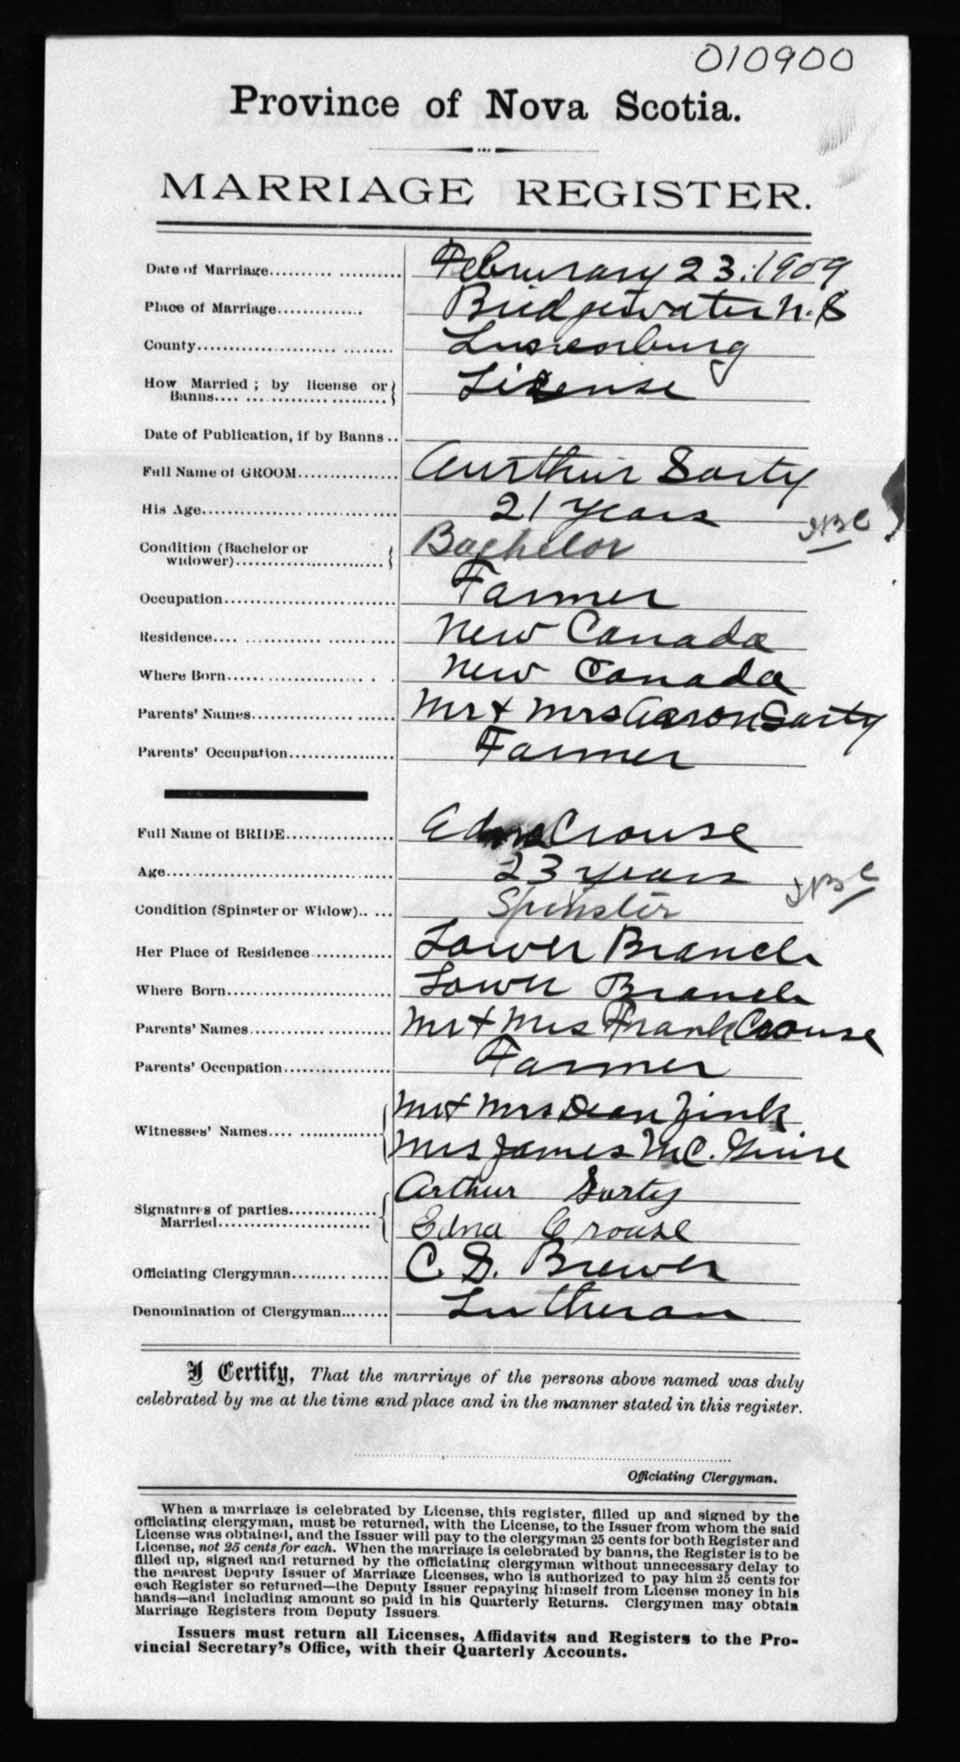 010900
Province of Nova Scotia.
MARRIAGE REGISTER.
Date of Marriage.......... Februrary 23. 1909
Place of Marriage.......... Bridgewater N.S
County.......... Lunenburg
How Married; by license or Banns.......... License
Date of Publication, if by Banns..
Full Name of GROOM.......... Aurthur Sarty
His Age.......... 21 years
Condition (Bachelor or widower).......... Bachelor
Occupation.......... Farmer
Residence.......... New Canada
Where Born.......... New Canada
Parents' Names.......... Mr + Mrs Aaron Sarty
Parents' Occupation.......... Farmer
Full Name of BRIDE.......... Edna Crouse
Age.......... 23 years
Condition (Spinster or Widow)..... Spinster
Her Place of Residence.......... Lower Branch
Where Born.......... Lower Branch
Parents' Names.......... Mr + Mrs Frank Crouse
Parents' Occupation.......... Farmer
Witnesses' Names.......... Mr + Mrs Dean Zink
Mrs James Mc.Guire
Signatures of parties Married.......... Arthur Sarty
Edna Crouse
Officiating Clergyman.......... C. S. Brewer
Denomination of Clergyman.......... Lutheran
I Certify, That the marriage of the persons above named was duly
celebrated by me at the time and place and in the manner stated in this register.
Officiating Clergyman.
When a marriage is celebrated by License, this register, filled up and signed by the
officiating clergyman, must be returned, with the License, to the Issuer from whom the said
License was obtained, and the Issuer will pay to the clergyman 25 cents for both Register and
License, not 25 cents for each. When the marriage is celebrated by banns, the Register is to be
filled up, signed and returned by the officiating clergyman without unnecessary delay to
the nearest Deputy Issuer of Marriage Licenses, who is authorized to pay him 25 cents for
each Register so returned—the Deputy Issuer repaying himself from License money in his
hands—and including amount so paid in his Quarterly Returns. Clergymen may obtain
Marriage Registers from Deputy Issuers.
Issuers must return all Licenses, Affidavits and Registers to the Pro-
vincial Secretary's Office, with their Quarterly Accounts.